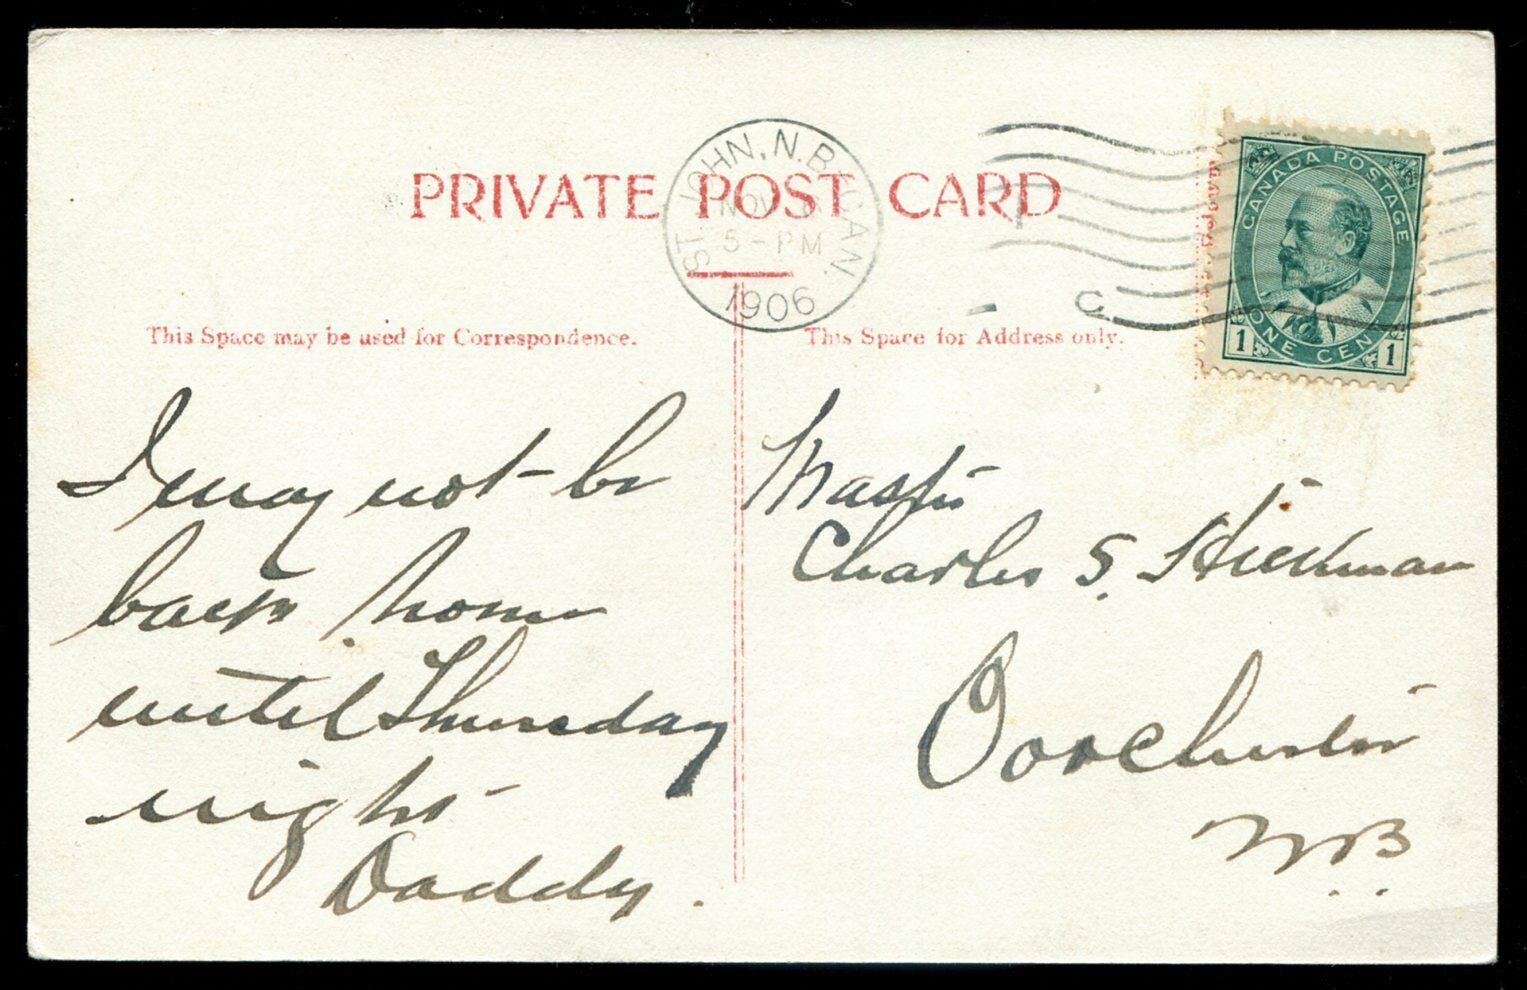 PRIVATE POST CARD
ST. JOHN, N.B. CAN.
NOV
5 - PM
1906
CANADA POSTAGE
1 ONE CENT 1
This Space may be used for Correspondence.
This Space for Address only.
I may not be
back home
until Thursday
night
Daddy.
Master
Charles S. Hickman
Dorchester
N.B.